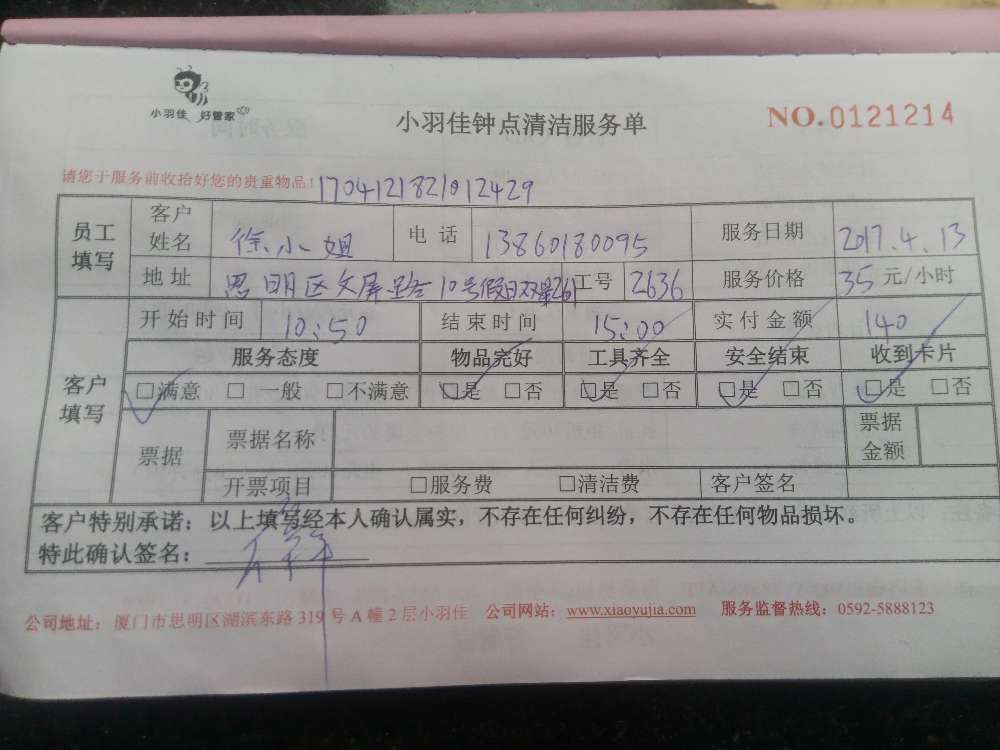 小羽佳 好管家
小羽佳钟点清洁服务单
NO.0121214
请您于服务前收拾好您的贵重物品! 1704121821012429
员工填写 客户姓名 徐小姐 电话 13860180095 服务日期 2017.4.13
地址 思明区文屏路10号假日双 261 工号 2636 服务价格 35元/小时
客户填写 开始时间 10:50 结束时间 15:00 实付金额 140
服务态度 物品完好 工具齐全 安全结束 收到卡片
☑满意 □一般 □不满意 ☑是 □否 ☑是 □否 ☑是 □否 ☑是 □否
票据 票据名称 票据金额
开票项目 □服务费 □清洁费 客户签名
客户特别承诺：以上填写经本人确认属实，不存在任何纠纷，不存在任何物品损坏。
特此确认签名：
公司地址：厦门市思明区湖滨东路319号A幢2层小羽佳 公司网站：www.xiaoyujia.com 服务监督热线：0592-5888123